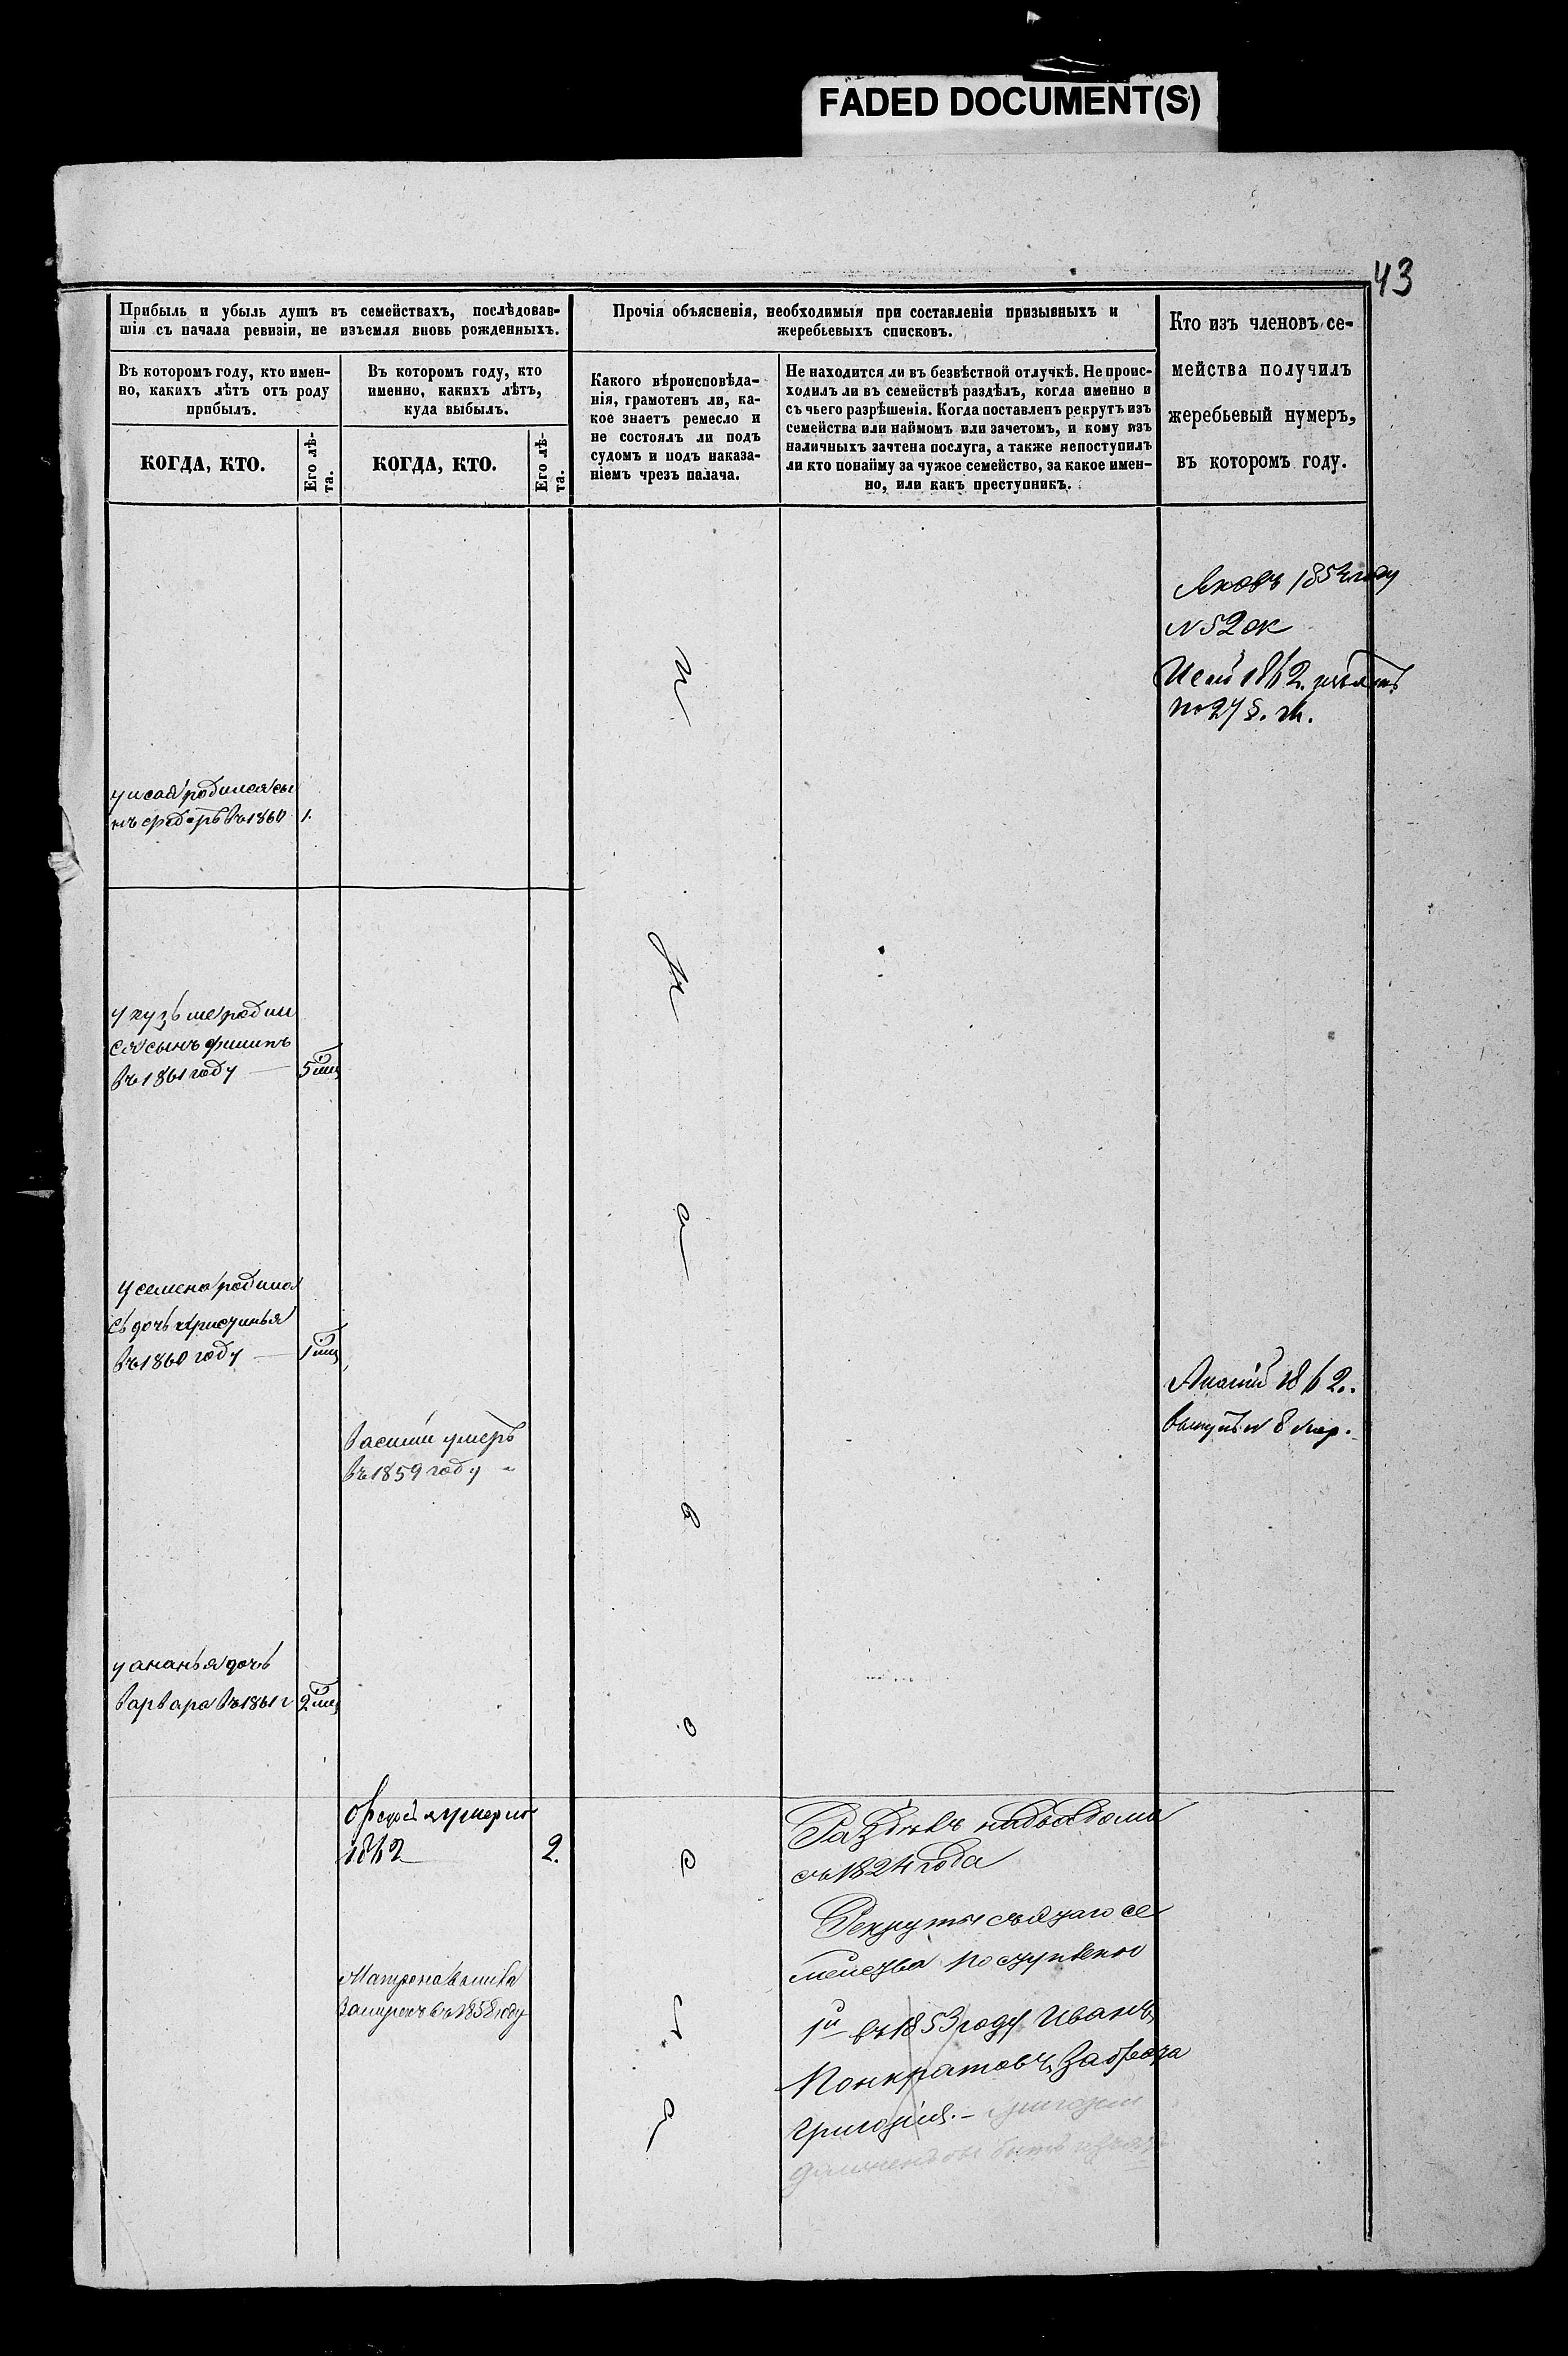 FADED DOCUMENT(S)
43
Прибыль и убыль душъ въ семействахъ, послѣдовав-
шія съ начала ревизіи, не изъемля вновь рожденныхъ.
Въ которомъ году, кто имен-
но, какихъ лѣтъ отъ роду
прибылъ.
КОГДА, КТО.
Его лѣ-
та.
Въ которомъ году, кто
именно, какихъ лѣтъ,
куда выбылъ.
КОГДА, КТО.
Его лѣ-
та.
Прочія объясненія, необходимыя при составленіи призывныхъ и
жеребьевыхъ списковъ.
Какого вѣроисповѣда-
нія, грамотенъ ли, ка-
кое знаетъ ремесло и
не состоялъ ли подъ
судомъ и подъ наказа-
ніемъ чрезъ палача.
Не находится ли въ безвѣстной отлучкѣ. Не проис-
ходилъ ли въ семействѣ раздѣлъ, когда именно и
съ чьего разрѣшенія. Когда поставленъ рекрутъ изъ
семейства или наймомъ или зачетомъ, и кому изъ
наличныхъ зачтена послуга, а также непоступилъ
ли кто понайму за чужое семейство, за какое имен-
но, или какъ преступникъ.
Кто изъ членовъ се-
мейства получилъ
жеребьевый нумеръ,
въ которомъ году.
Яковъ 185 году
N 52
1862.
№ 27
у исая родился сы
нъ федоръ въ 1860 1.
у кузьме родил
ся сынъ филипъ
въ 1861 году 5
у семена родила
сь дочь христинья
въ 1860 году 1
1862.
N 8
василий умеръ
въ 1859 году
у ананья дочь
варвара въ 1861 г 2
умерла
1862 2.
Раздѣлъ
съ 1824 года
Рекруты съ сего се
мейства поступлено
1й въ 1853 году Иванъ
Понкратовъ за брата
Григорія. - григорий
быть
Матрена вышла
замужъ въ 1858 году
п
р
а
в
о
с
л
а